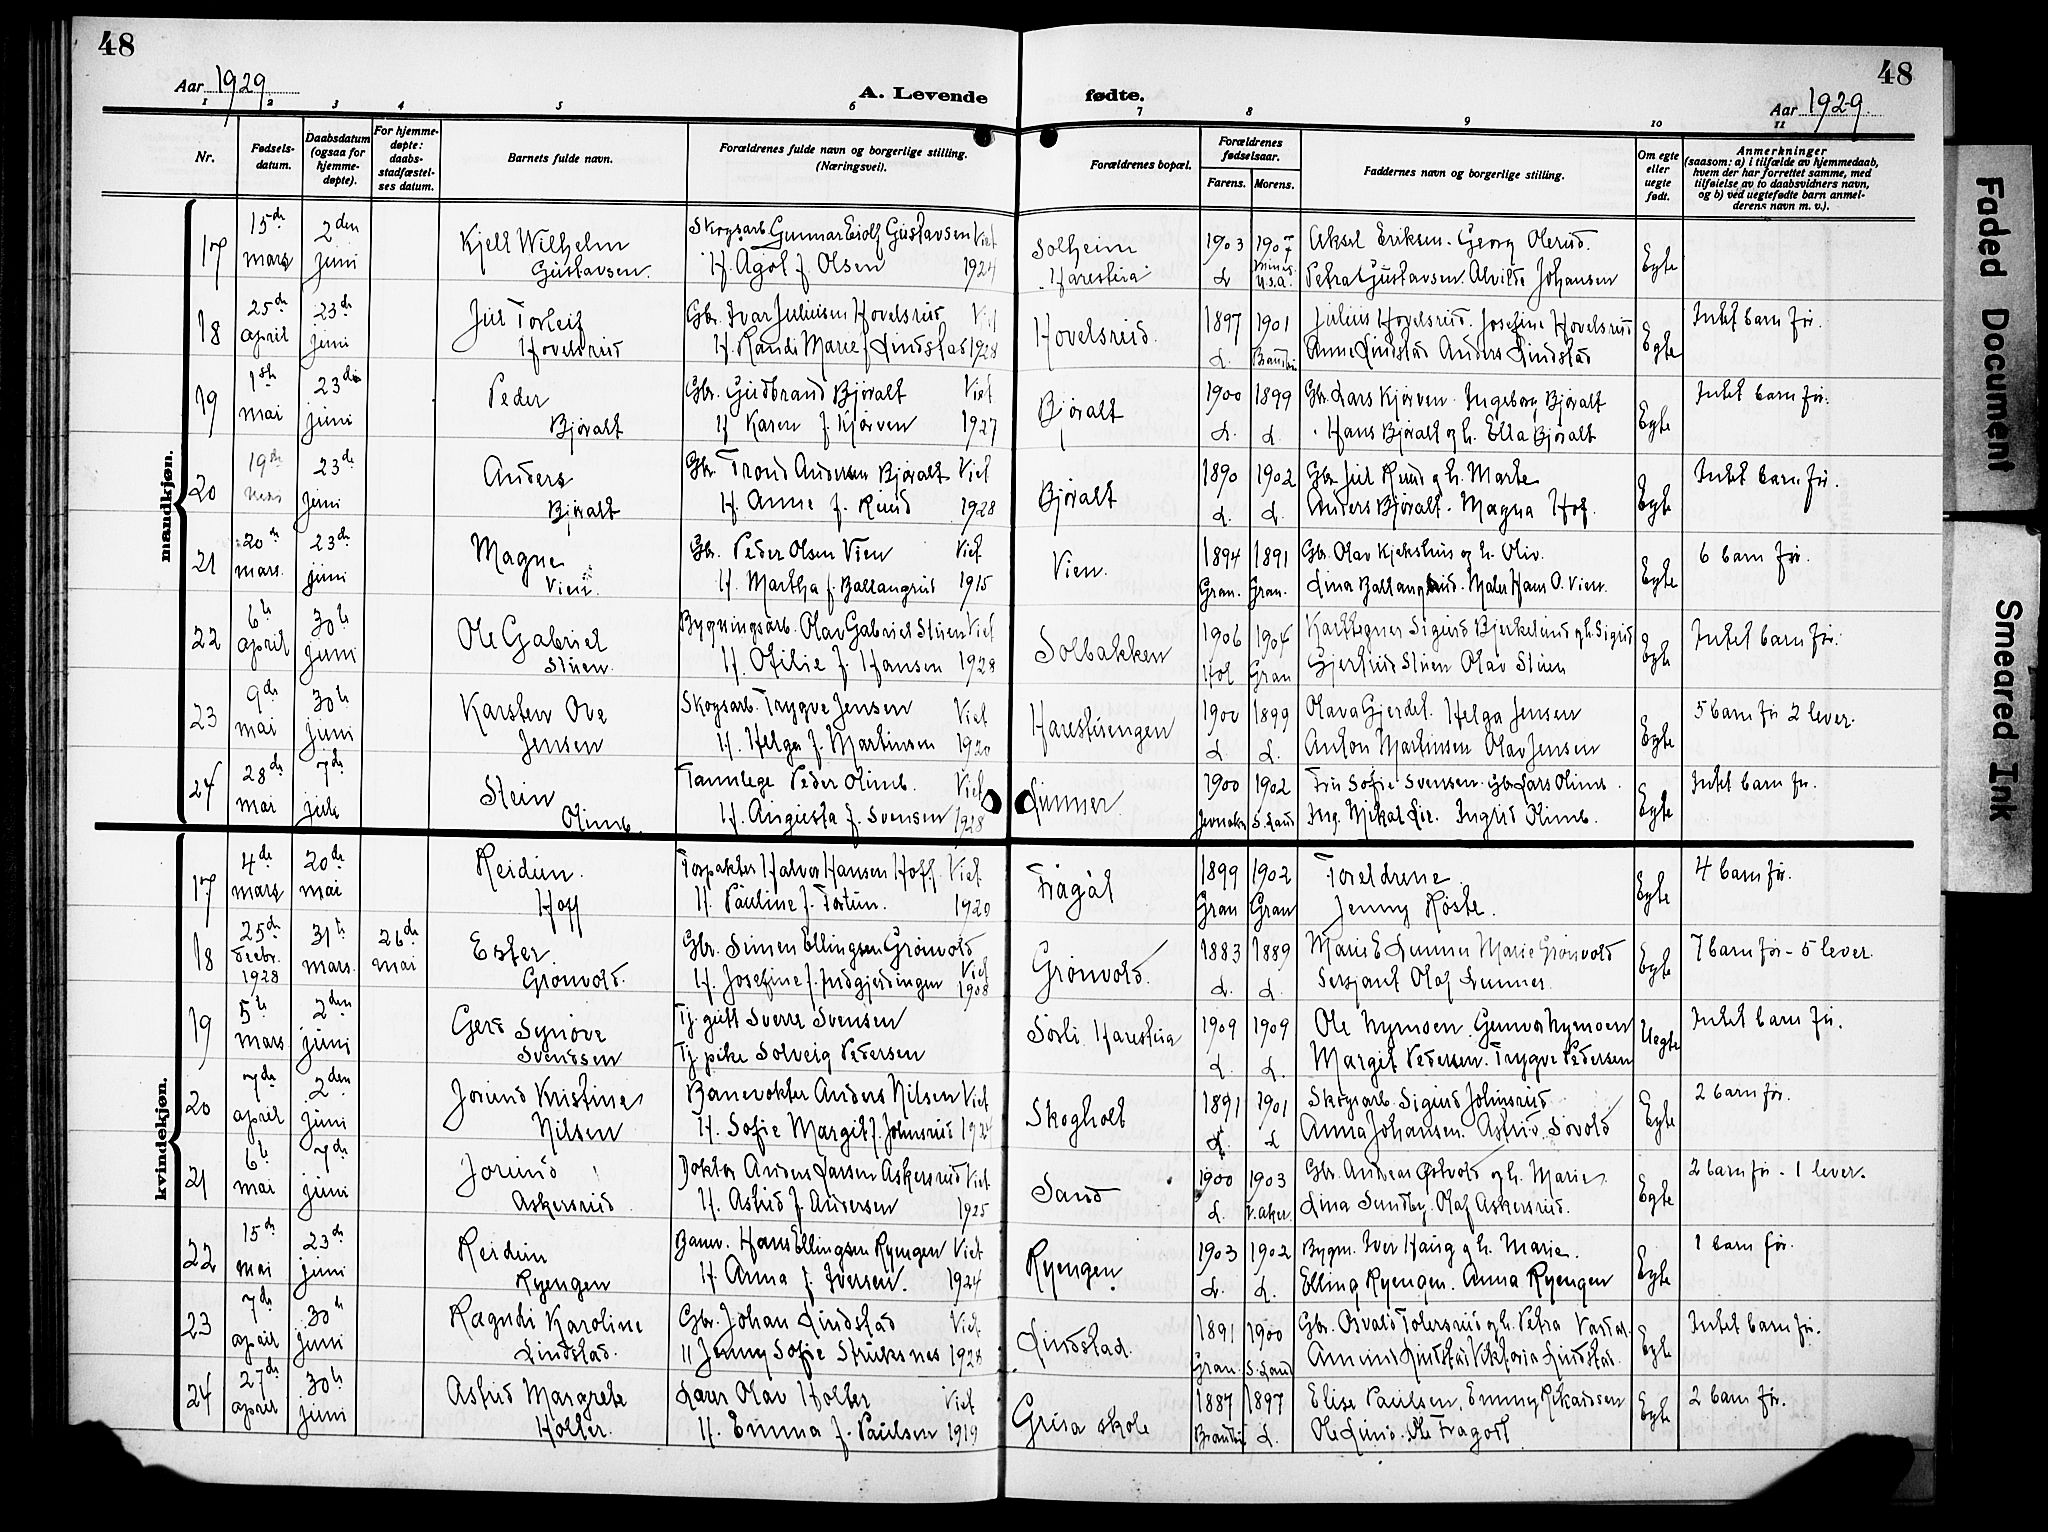 48
48
Aar 1929
A. Levende fødte.
Aar 1929.
1 2 3 4 5 6 7 8 9 10 11
Nr.
Fødselsdatum.
Daabsdatum (ogsaa for hjemmedøpte).
For hjemmedøpte: daabsstadfæstelses datum.
Barnets fulde navn.
Forældrenes fulde navn og borgerlige stilling. (Næringsvei).
Forældrenes bopæl.
Forældrenes fødselsaar.
Farens. Morens.
Faddernes navn og borgerlige stilling.
Om egte eller uegte født.
Anmerkninger (saasom: a) i tilfælde av hjemmedaab, hvem der har forrettet samme, med tilføielse av to daabsvidners navn, og b) ved uegtefødte barn anmelderens navn m. v.).
mandkjøn.
17 15de 2den Kjell Wilhelm Skogsarb. Gunnar Eiolf Gustavsen Viet Solheim 1903 1907 Aksel Eriksen. Georg Olerud. Egte
mars juni Gustavsen. H. Agot f. Olsen 1924 Harestua L. Minis. U.S.A. Petra Gustavsen. Alvilde Johansen
18 25de 23de Jul Torleif Gbr. Ivar Juliusen Hovelsrud Viet Hovelsrud. 1897 1901 Julius Hovelsrud. Josefine Hovelsrud Egte Intet barn før.
april juni Hovelsrud H. Randi Marie f. Lindstad 1928 L. Brandbu Anne Lindstad Anders Lindstad
19 1ste 23de Peder Gbr. Gudbrand Bjøralt Viet Bjøralt 1900 1899 Gbr. Lars Kjørven. Ingeborg Bjøralt Egte Intet barn før.
mai juni Bjøralt H. Karen f. Kjørven 1927 L. L. Hans Bjøralt og h. Ella Bjøralt
20 19de 23de Anders Gbr. Trond Andersen Bjøralt Viet Bjøralt 1890 1902 Gbr. Jul Ruud og h. Marte Egte Intet barn før.
juni Bjøralt H. Anne f. Ruud 1928 L. L. Anders Bjøralt. Magna Hof.
21 20de 23de Magne Gbr. Peder Olsen Vien Viet Vien. 1894 1891 Gbr. Olav Kjekshus og h. Oliv. Egte 6 barn før.
mars. juni Vien. H. Martha f. Ballangrud 1915 Gran. Gran. Lina Ballangrud. Maler Hans O. Vien.
22 6te 30te Ole Gabriel Bygningsarb. Olav Gabriel Stuen Viet Solbakken 1906 1904 Karttegner Sigurd Bjerkelund og h. Sigrid Egte Intet barn før.
april juni Stuen. H. Otilie f. Hansen 1928 Hol Gran Gjertrud Stuen Olav Stuen
23 9de 30te Karsten Ove Skogsarb. Trygve Jensen Viet Harestuengen 1900 1899 Olava Gjerdet. Helga Jensen Egte 5 barn før 2 lever.
mai juni Jensen H. Helga f. Martinsen 1920 L L. Anton Martinsen Olav Jensen
24 28de 7de Stein Tannlege Peder Olimb. Viet Lunner 1900 1902 Fru Sofie Svensen. Gbr. Lars Olimb. Egte Intet barn før.
mai juli Olimb. H. Augusta f. Svensen 1928 Jevnaker S. Land Ing. Mikal Lie. Ingrid Olimb.
kvindekjøn.
17 4de 20de Reidun. Torpakter Halvor Hansen Hoff. Viet Frågåt 1899 1902 Foreldrene. Egte 4 barn før.
mars mai Hoff H. Pauline f. Fortun. 1920 Gran Gran Jenny Roste.
18 25de 31te 26de Ester Gbr. Simen Ellingsen Grønvold Grønvold. 1883 1889 Marie E Lunner Marie Grønvold Egte 7 barn før - 5 lever.
decbr. 1928 mars. mai Grønvold. H. Josefine f. Indgjerdingen Viet 1908 L. L. Sersjant Olaf Lunner.
19 5te 2den Gerd Synøve Tj. gutt Sverre Svensen Sørli. Harestua 1909 1909 Ole Nymoen. Gunvor Nymoen Uegte Intet barn før.
mars juni Svendsen Tj. pike Solveig Pedersen L. L. Margit Pedersen. Trygve Pedersen
20 7de 2den Jorund Kristine Banevokter Anders Nilsen Viet Skogholt 1891 1901 Skogsarb. Sigurd Johnsrud Egte 2 barn før.
april juni Nilsen H. Sofie Margit f. Johnsrud 1924 L. L Anna Johansen. Astrid Søvold
21 6te 7de Jorund Doktor Anders Larsen Askersrud Viet Sand 1900 1903 Gbr. Andreas Østvold og h. Marie Egte 2 barn før - 1 lever.
mai juni Askersrud H. Astrid f. Andersen 1925 L. V. Aker. Lina Sundby. Olaf Askersrud.
22 15de 23de Reidun Banev. Hans Ellingsen Ryengen Viet Ryengen 1903 1902 Bygm. Iver Haug og h. Marie. Egte 1 barn før.
mai juni Ryengen H. Anna f. Iversen. 1924 L. L. Elling Ryengen. Anna Ryengen
23 7de 30te Ragndi Karoline Gbr. Johan Lindstad Viet Lindstad. 1891 1900 Gbr. Osvald Tolersrud og h. Petra Egte Intet barn før.
april juni Lindstad. H Jenny Sofie Struksnes 1928 Gran. S. Land Amund Lindstad Viktoria Lindstad.
24 27de 30te Astrid Margrete Lærer Olav Holter Viet Grua skole 1887 1897 Elise Paulsen, Emmy Rikardsen Egte 2 barn før.
april juni Holter. H. Emma f. Paulsen 1919 Brandbu L. Ole Lund. Ole Fragott
Faded Document
Smeared Ink